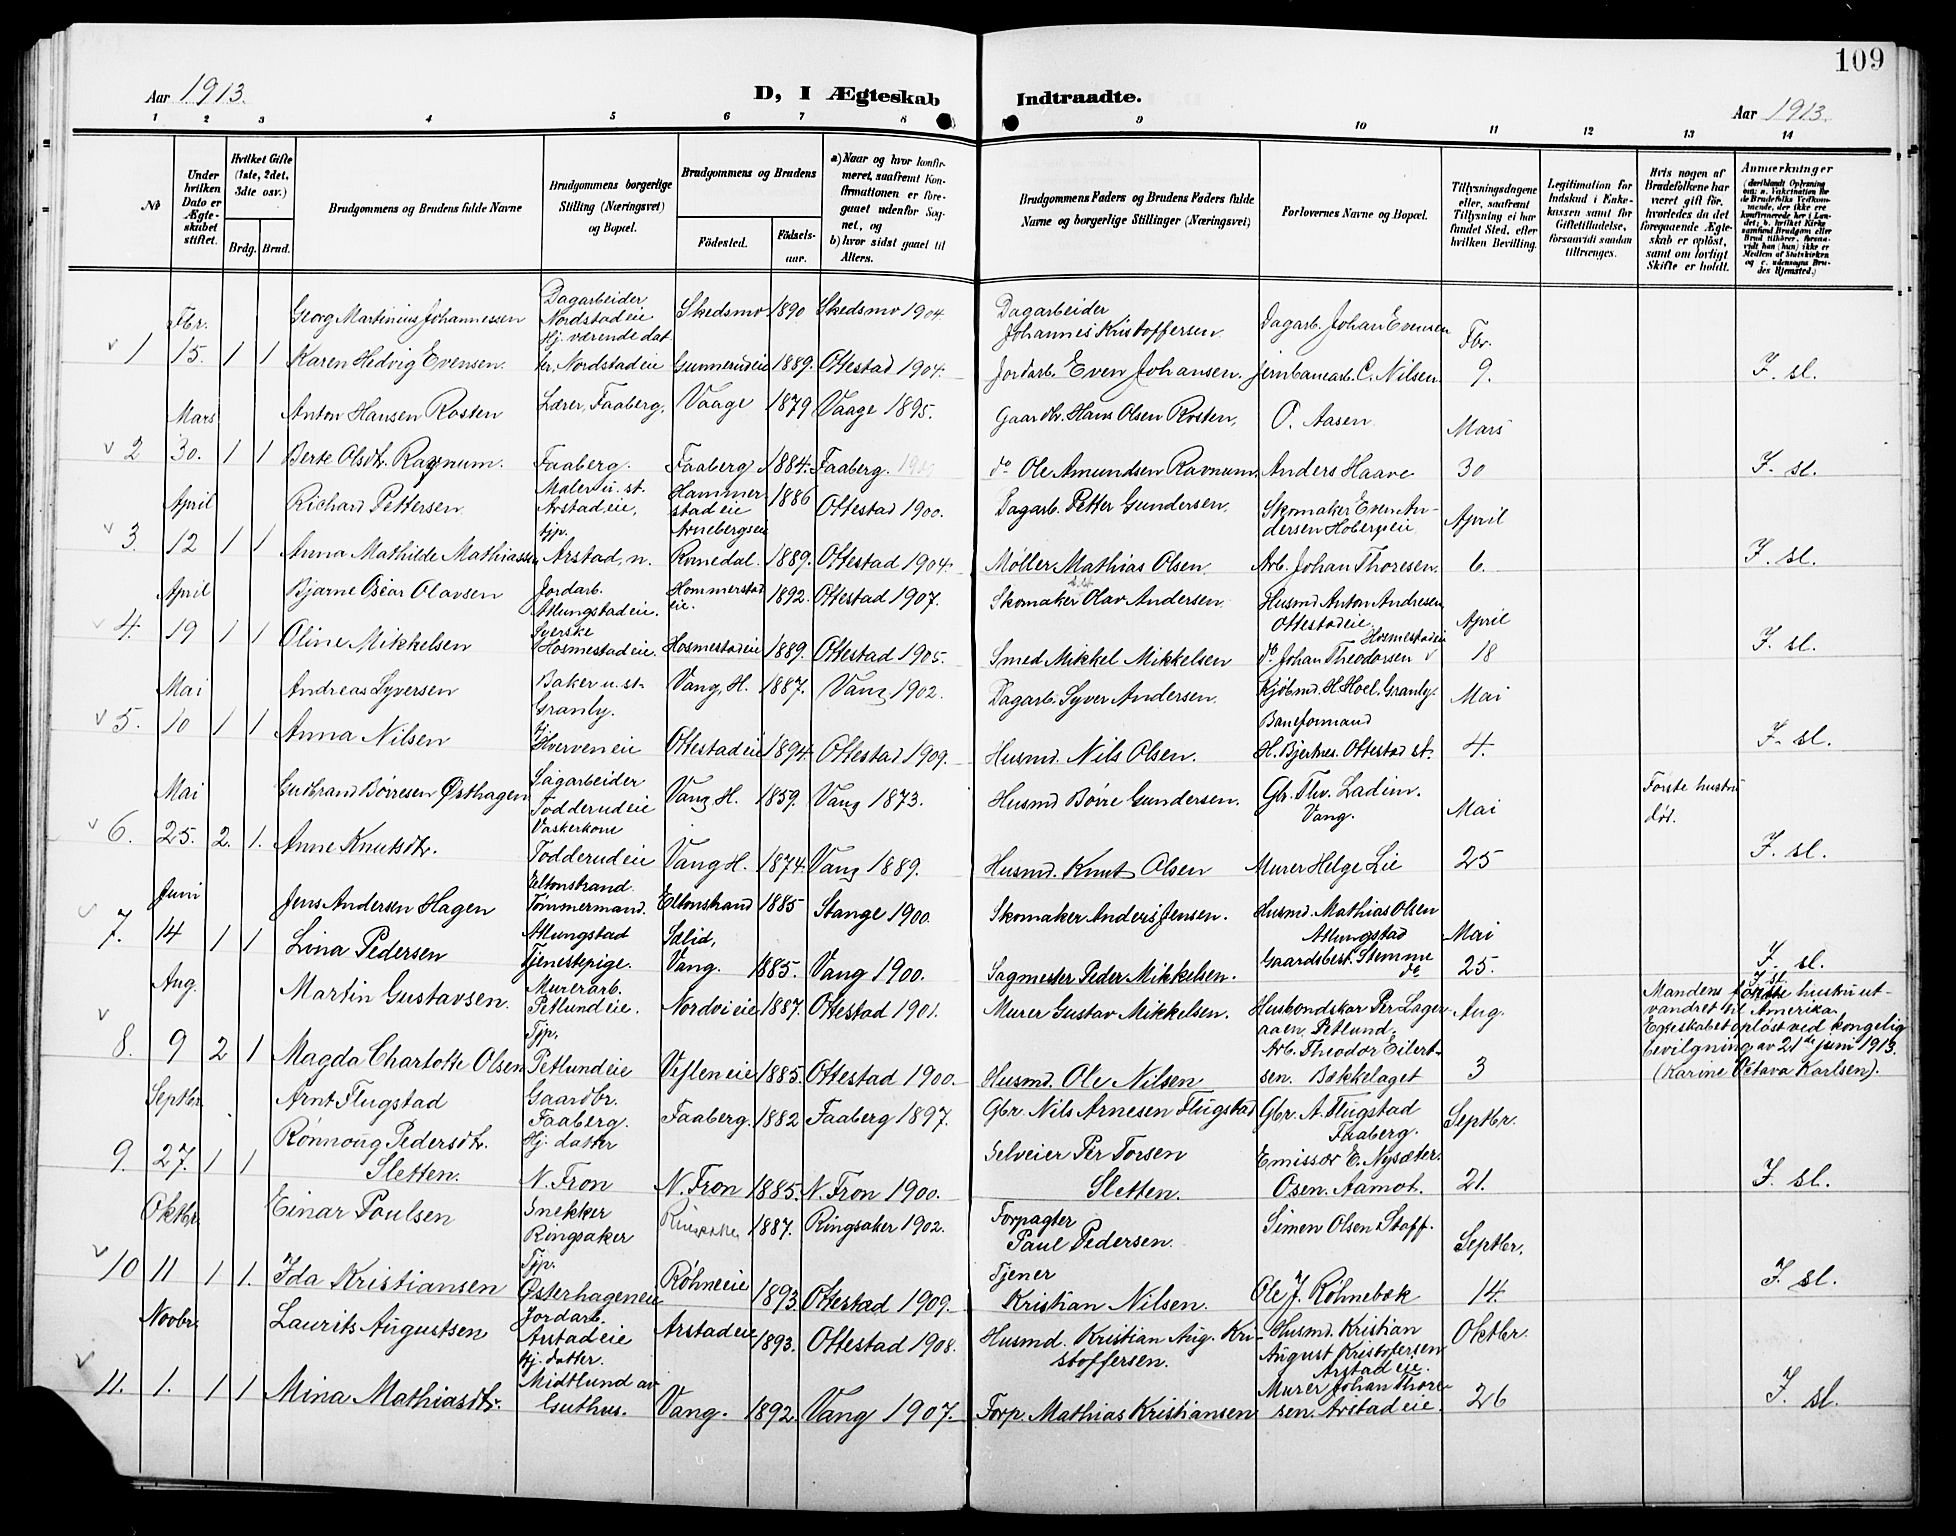 109
Aar 1913.
D, I Ægteskab Indtraadte.
Aar 1913.
1 2 3 4 5 6 7 8 9 10 11 12 13 14
No
Under hvilken Dato er Ægte-skabet stiftet.
Hvilket Gifte (1ste, 2det, 3dte osv.)
Brdg. Brud.
Brudgommens og Brudens fulde Navne
Brudgommens borgerlige Stilling (Næringsvei) og Bopæl.
Brudgommens og Brudens
Födested. Födsels-aar.
a) Naar og hvor konfir-meret, saafremt Kon-firmationen er fore-gaaet udenfor Sog-net, og
b) hvor sidst gaaet til Alters.
Brudgommens Faders og Brudens Faders fulde Navne og borgerlige Stillinger (Næringsvei)
Forlovernes Navne og Bopæl.
Tillysningsdagene eller, saafremt Tillysning ei har fundet Sted, efter hvilken Bevilling.
Legitimation for Indskud i Enke-kassen samt for Giftetilladelse, forsaavidt saadan tiltrænges.
Hvis nogen af Brudefolkene har været gift før, hvorledes da det foregaaende Ægte-skab er oplöst, samt om lovligt Skifte er holdt.
Anmærkninger
Fbr. Georg Martinius Johannessen Dagarbeider Nordstadeie Skedsmo 1890 Skedsmo 1904. Dagarbeider Johannes Kristoffersen. Dagarb. Johan Evensen Fbr.
1 15. 1 1 Karen Hedvig Evensen. Hj. værende datter, Nordstadeie Gunnerudeie 1889. Ottestad 1904. Jordarb. Even Johansen. Jernbanearb. C. Nilsen. 9. I. sl.
Mars Anton Hansen Rosten Lærer, Faaberg. Vaage 1879 Vaage 1895. Gaardbr. Hans Olsen Rosten, O. Aasen Mars
2 30. 1 1 Berte Olsdtr. Ravnum. Faaberg. Faaberg 1884. Faaberg. do Ole Amundsen Ravnum. Anders Haave 30 I. sl.
April Richard Pettersen. Maler u. st. Arstadeie, Hammerstadeie 1886 Ottestad 1900. Dagarb. Petter Gundersen. Skomaker Even Andersen Hobergseie. April
3. 12 1 1 Anna Mathilde Mathiassen tjp. Arstad, n. Arnebergseie Romedal. 1889. Ottestad 1904. Møller Mathias Olsen. Arb. Johan Thoresen. 6. I. sl.
April Bjarne Oscar Olavsen Jordarb. Atlungstadeie. Hommerstadeie. 1892. Ottestad 1907. Skomaker Olav Andersen. Husmd. Anton Andresen Ottestadeie April
4. 19 1 1 Oline Mikkelsen Syerske Hosmestadeie. Hosmestadeie 1889. Ottestad 1905. Smed Mikkel Mikkelsen do Johan Theodorsen Hosmestadeie 18 I. sl.
Mai Andreas Syversen Baker u. st. Granly. Vang, H. 1887. Vang 1902. Dagarb. Syver Andersen. Kjøbmd. H. Hoel. Granly. Mai
5. 10 1 1 Anna Nilsen Hverveneie Ottestadeie 1894. Ottestad 1909. Husmd. Nils Olsen. Baneformand H. Bjerknes. Ottestad st. 4. I. sl.
Mai Gudbrand Børresen Østhagen Sagarbeider Todderudeie Vang H. 1859. Vang 1873. Husmd Børre Gundersen. Gbr. Thv. Ladim. Vang. Mai Første hustru død.
6. 25. 2. 1. Anne Knutsdtr. Vaskerkone Todderudeie Vang H. 1874. Vang 1889. Husmd. Knut Olsen Murer Helge Lie 25 I. sl.
Juni Jens Andersen Hagen Eltonstrand. Tømmermand. Eltonstrand 1885 Stange 1900. Skomaker Anders Jensen. Husmd. Mathias Olsen Atlungstad Mai
7. 14 1 1 Lina Pedersen Atlungstad Tjenestepige. Sælid, Vang. 1885. Vang 1900. Sagmester Peder Mikkelsen. Gaardsbest. Stemme do 25. I. sl.
Aug. Martin Gustavsen. Murerarb. Petlundeie. Nordvieie 1887. Ottestad 1901. Murer Gustav Mikkelsen. Husbondskar Per Lageraaen, Petlund. Aug. I. sl.
8. 9 2 1 Magda Charlotte Olsen Tjp. Petlundeie Vesleneie 1885. Ottestad 1900. Husmd. Ole Nilsen Arb. Theodor Eilertsen. Bækkelaget 3 Mandens første hustru utvandret til Amerika. Egteskabet opløst ved kongelig bevilgning av 21de juni 1913. (Karine Octava Karlsen).
Septbr. Arnt Flugstad Gaardbr. Faaberg. Faaberg. 1882 Faaberg 1897. Gbr. Nils Arnesen Flugstad Gbr. A. Flugstad Faaberg. Septbr.
9. 27. 1 1 Rønnoug Pedersdtr. Sletten. Hj. datter N. Fron N. Fron 1885. N. Fron 1900. Selveier Per Torsen Sletten. Emissær E. Nysæter. Osen. Aamot. 21. I. sl.
Oktbr. Einar Poulsen Snekker Ringsaker Ringsaker 1887. Ringsaker 1902. Forpagter Paul Pedersen. Simen Olsen Stoff. Septbr.
10 11 1 1. Ida Kristiansen Tjp. Østerhageneie Røhneeie 1893 Ottestad 1909. Tjener Kristian Nilsen. Ole J. Røhnebæk 14. I. sl.
Novbr. Laurits Augustsen Jordarb. Arstadeie Arstadeie 1893. Ottestad 1908. Husmd. Kristian Aug. Kristoffersen. Husmd. Kristian August Kristoffersen Arstadeie. Oktbr.
11. 1. 1 1 Mina Mathiasdtr. Hj. datter. Midtlund av Guthus. Vang. 1892. Vang 1907. Forp. Mathias Kristiansen Murer Johan Thoresen. Arstadeie. 26 I. sl.